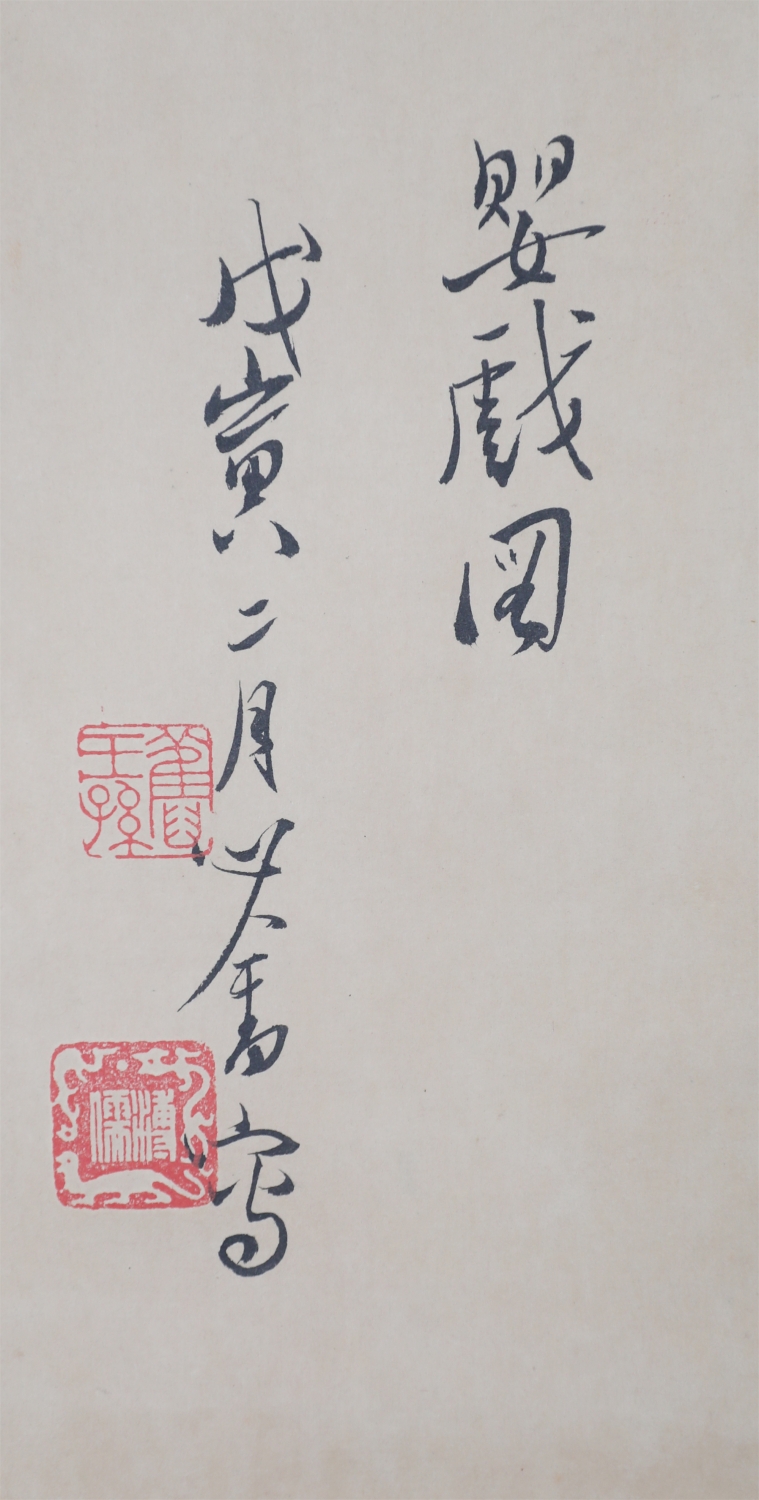 嬰戲圖
戊寅二月心畬寫
舊王孫
溥儒